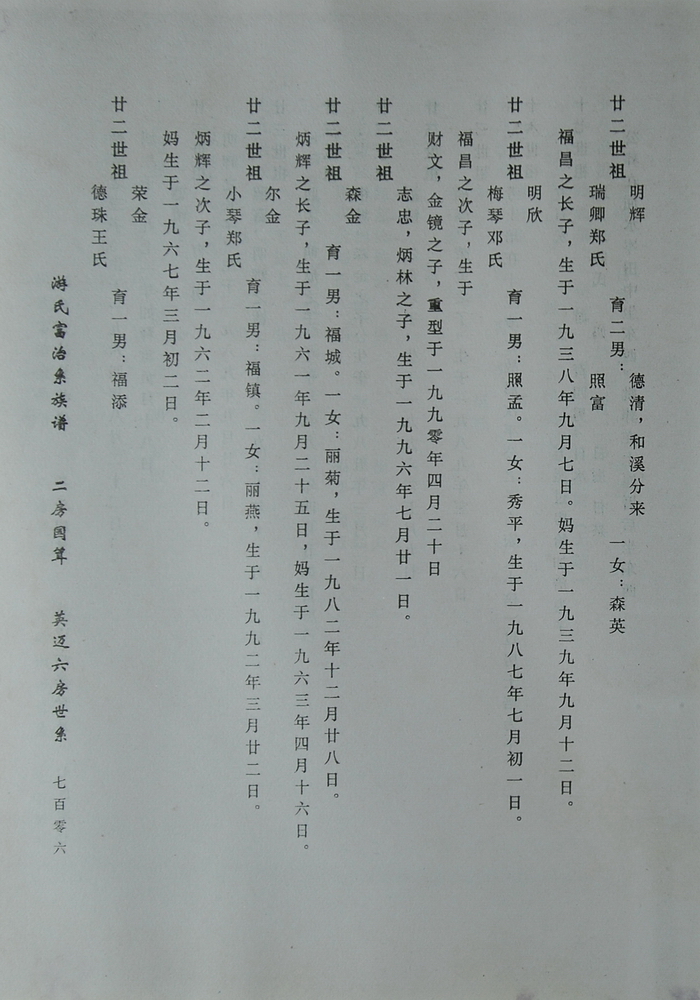 廿二世祖
明辉
瑞卿郑氏
育二男：
德清，和溪分来
照富
一女：森英
福昌之长子，生于一九三八年九月七日。妈生于一九三九年九月十二日。
廿二世祖
明欣
梅琴邓氏
育一男：照孟。一女：秀平，生于一九八七年七月初一日。
福昌之次子，生于
财文，金镜之子，重型于一九九零年四月二十日
廿二世祖
志忠，炳林之子，生于一九九六年七月廿一日。
廿二世祖
森金
育一男：福城。一女：丽菊，生于一九八二年十二月廿八日。
炳辉之长子，生于一九六一年九月二十五日，妈生于一九六三年四月十六日。
廿二世祖
尔金
小琴郑氏
育一男：福镇。一女：丽燕，生于一九九二年三月廿二日。
炳辉之次子，生于一九六二年二月十二日。
妈生于一九六七年三月初二日。
廿二世祖
荣金
德珠王氏
育一男：福添
游氏富治系族谱 二房国茸 英迈六房世系 七百零六